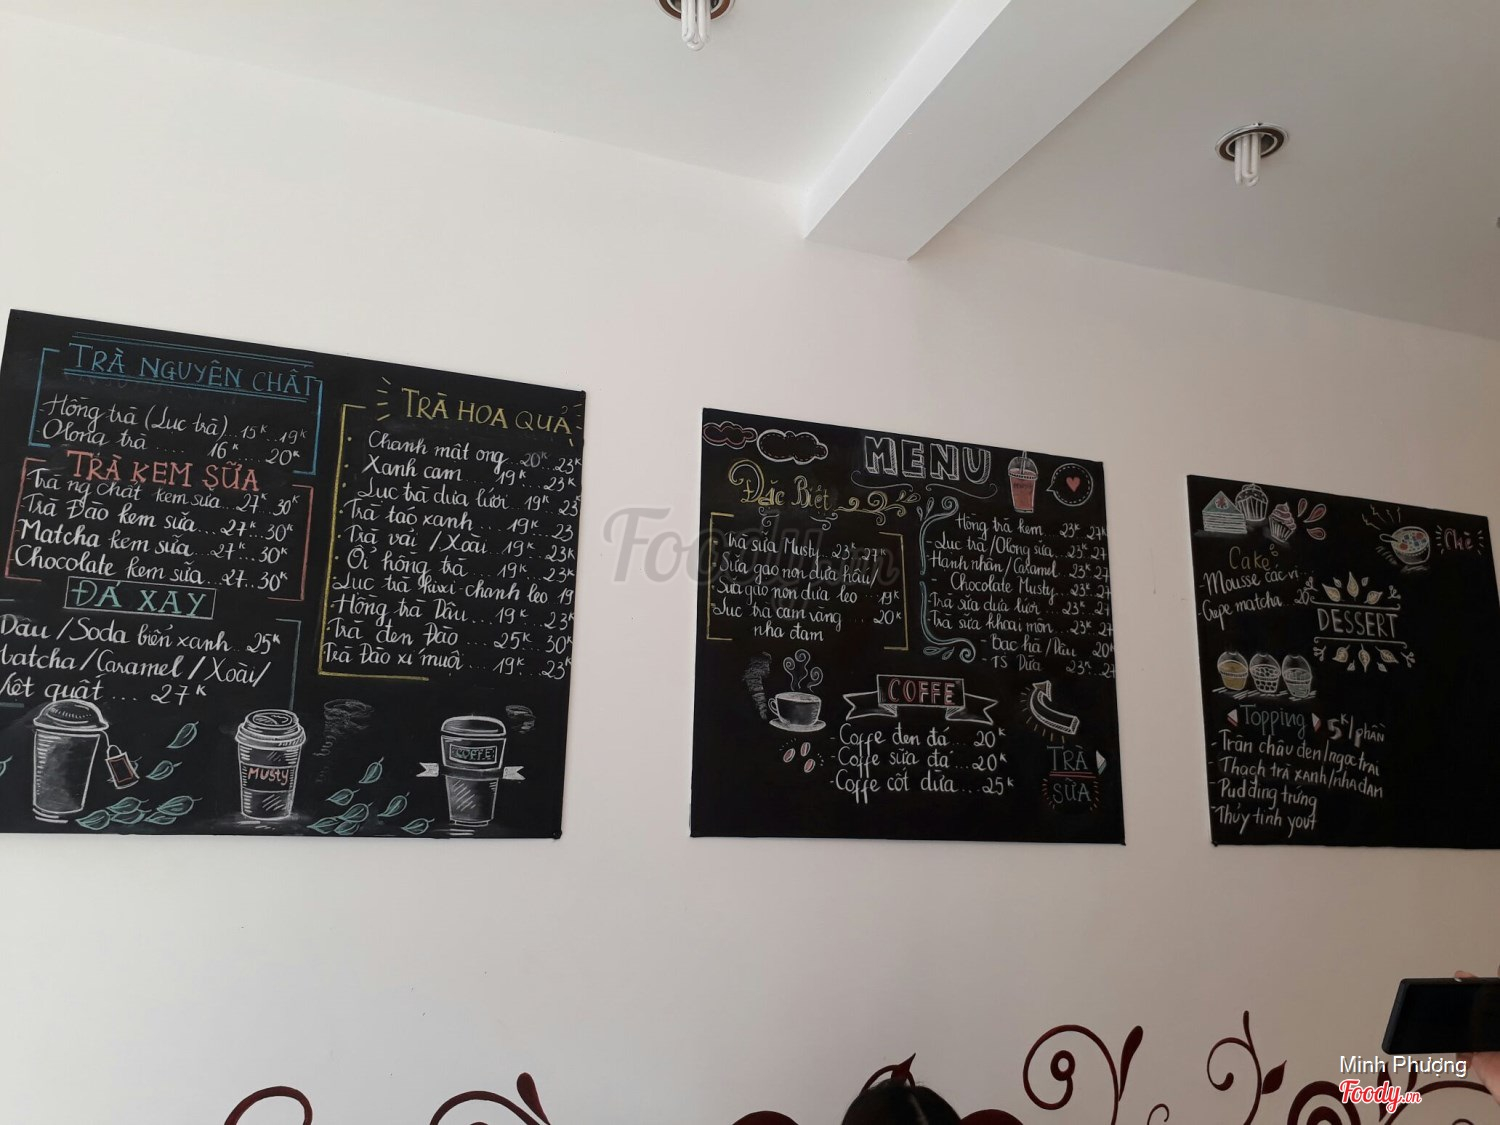 TRÀ NGUYÊN CHẤT
Hồng trà (Lục trà)...15K..19K
Ôlong trà.... 16K 20K
TRÀ KEM SỮA
Trà ng chất kem sữa...27K.30K
Trà Đào kem sữa...27K..30K
Matcha kem sữa...27K..30K
Chocolate kem sữa...27..30K
ĐÁ XAY
Dâu/Soda biển xanh..25K
/Caramel/Xoài/
quất....27K
MUSTY
COFFE
TRÀ HOA QUẢ
Chanh mật ong...20K..23K
Xanh cam ...19K..23K
Lục trà dưa lưới 19K..23
Trà táo xanh...19K..23
Trà vải / Xoài..19K..23K
Ổi hồng trà...19K..23K
Lục trà kiwi-chanh leo 19
Hồng trà Dâu...19K..23K
Trà đen Đào...25K..30K
Trà Đào xí muội...19K..23K
MENU
Đặc Biệt
Trà sữa Musty..23K..27K
Sữa gạo non dừa hấu/
Sữa gạo non dứa leo..19K
Lục trà cam vàng...20K
nha đam
Hồng trà kem...23K..27K
Lục trà/Ôlong sữa..23K..27
Hạnh nhân/Caramel..23K..27
- Chocolate Musty..23K..27
Trà sữa dưa lưới..23K..27
Trà sữa khoai môn...23K..27
- Bạc hà/Dâu 20K
- TS Dừa 23K..27
COFFE
- Coffe đen đá...20K
- Coffe sữa đá...20K
- Coffe cốt dừa...25K
TRÀ
SỮA
Cake
- Mousse các vị...
- Crepe matcha..20K
Chè
DESSERT
Topping 5K/phần
- Trân châu đen/ngọc trai
- Thạch trà xanh/nha đam
- Pudding trứng
- Thủy tinh yout
Foody.vn
Minh Phượng
Foody.vn